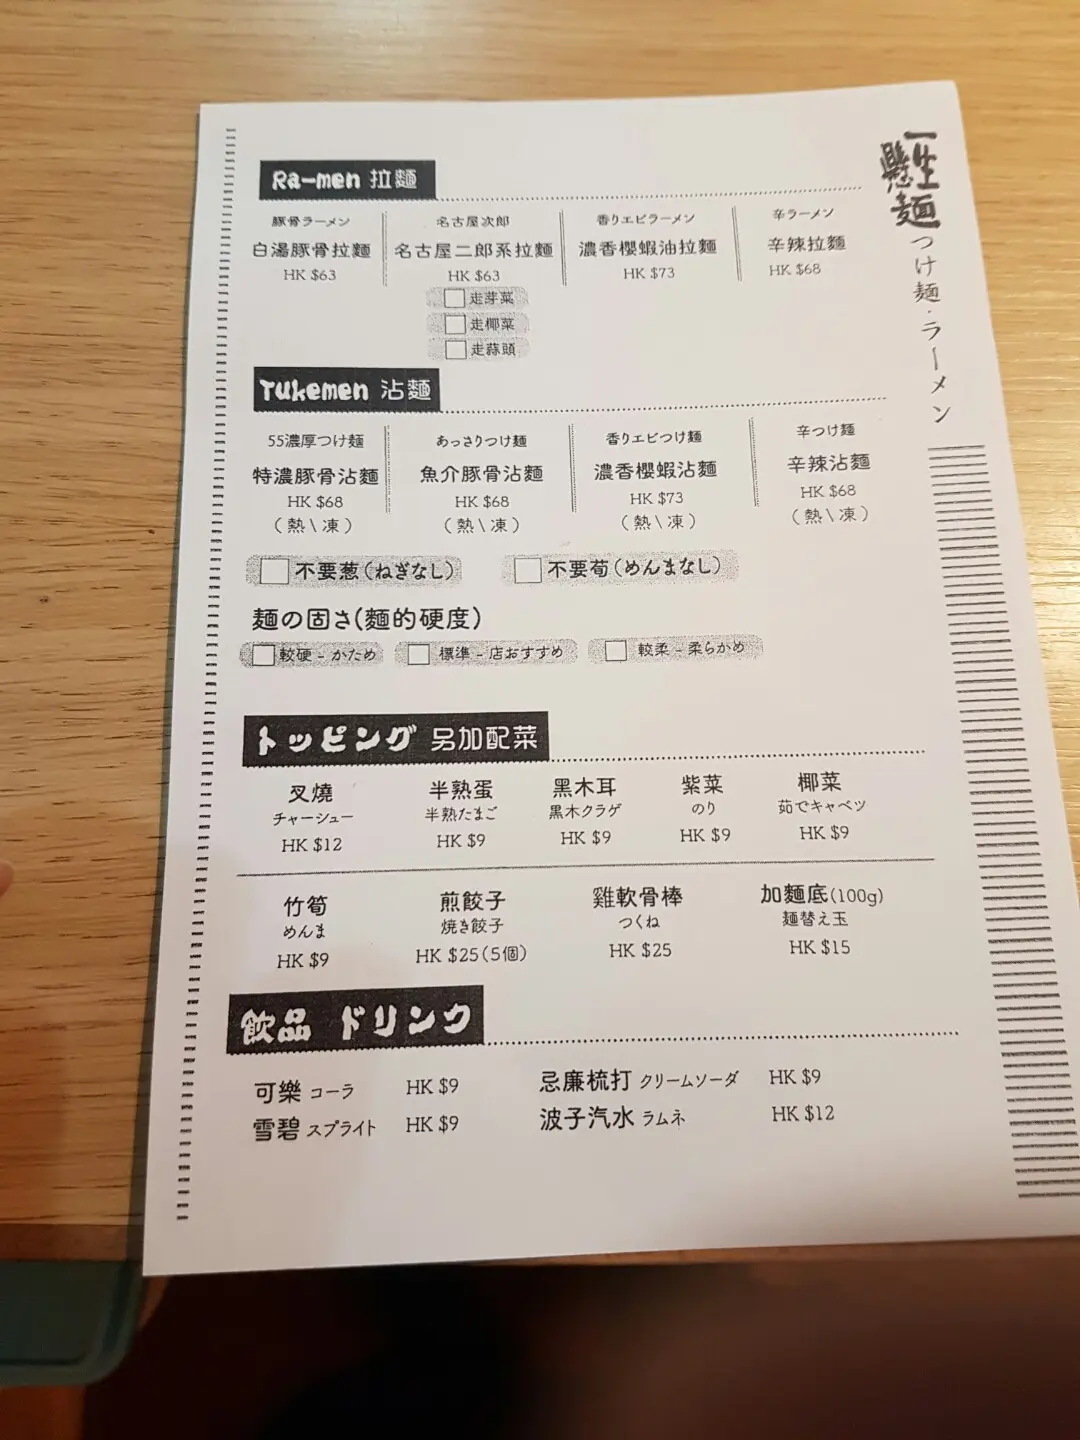 一生
懸麺
つけ麺・ラーメン
Ra-men 拉麵
豚骨ラーメン
白湯豚骨拉麵
HK $63
名古屋次郎
名古屋二郎系拉麵
HK $63
走芽菜
走椰菜
走蒜頭
香りエビラーメン
濃香櫻蝦油拉麵
HK $73
辛ラーメン
辛辣拉麵
HK $68
Tukemen 沾麵
55濃厚つけ麺
特濃豚骨沾麵
HK $68
(熱\凍)
あっさりつけ麺
魚介豚骨沾麵
HK $68
(熱\凍)
香りエビつけ麺
濃香櫻蝦沾麵
HK $73
(熱\凍)
辛つけ麺
辛辣沾麵
HK $68
(熱\凍)
不要葱(ねぎなし)
不要荀(めんまなし)
麺の固さ(麵的硬度)
較硬 - かため
標準 - 店おすすめ
較柔 - 柔らかめ
トッピング 另加配菜
叉燒
チャーシュー
HK $12
半熟蛋
半熟たまご
HK $9
黑木耳
黒木クラゲ
HK $9
紫菜
のり
HK $9
椰菜
茹でキャベツ
HK $9
竹筍
めんま
HK $9
煎餃子
焼き餃子
HK $25(5個)
雞軟骨棒
つくね
HK $25
加麵底(100g)
麺替え玉
HK $15
飲品 ドリンク
可樂 コーラ HK $9
雪碧 スプライト HK $9
忌廉梳打 クリームソーダ HK $9
波子汽水 ラムネ HK $12